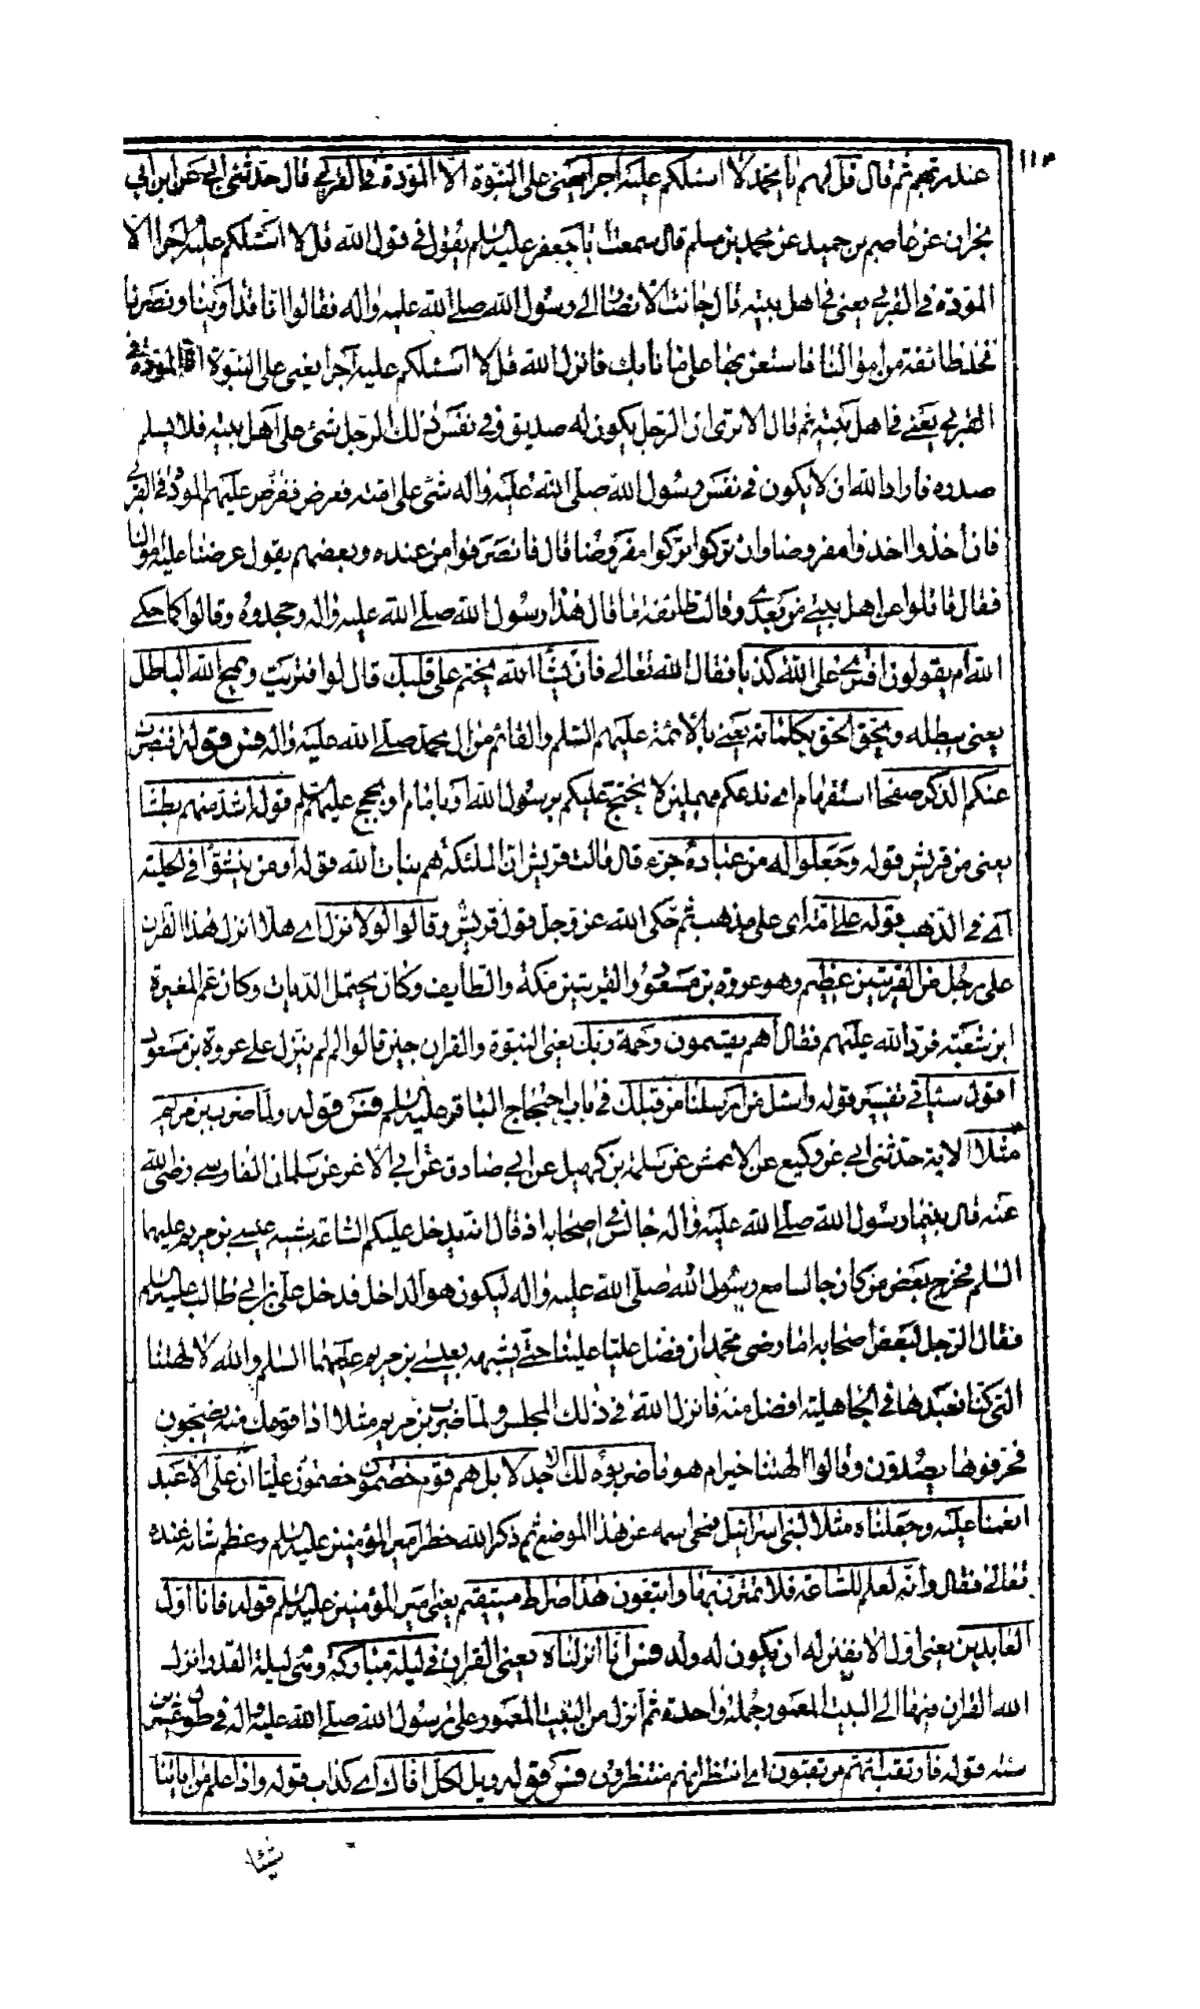 ١١٣
عند ربهم ثم قال قل لهم يا محمد لا اسئلكم عليه اجرا يعنى على النبوة الا المودة في القربى قال حدثنى ابي عن ابن ابي
نجران عن عاصم بن حميد عن محمد بن مسلم قال سمعت ابا جعفر عليه السلم يقول في قول الله قل لا اسئلكم عليه اجرا الا
المودة في القربى يعنى في اهل بيته قال جائت الانصار الى رسول الله صلى الله عليه واله فقالوا انا قد اوينا ونصرنا
فخذ طائفة من اموالنا فاستعن بها على ما نابك فانزل الله قل لا اسئلكم عليه اجرا يعنى على النبوة الا المودة في
القربى يعنى في اهل بيته ثم قال الا ترى ان الرجل يكون له صديق وفي نفس ذلك الرجل شئ على اهل بيته فلا يسلم
صدره فاراد الله ان لا يكون في نفس رسول الله صلى الله عليه واله شئ على امته فعرض ففرض عليهم المودة في القربى
فان اخذوا اخذوا مفروضا وان تركوا تركوا مفروضا قال فانصرفوا من عنده وبعضهم يقول عرضنا عليه اموالنا
فقال قاتلوا عن اهل بيتي من بعدي وقالت طائفة ما قال هذا رسول الله صلى الله عليه واله وجحدوه وقالوا كما حكى
الله ام يقولون افترى على الله كذبا فقال الله تعالى فان يشأ الله يختم على قلبك قال لو افتريت ويمح الله الباطل
يعنى يبطله ويحق الحق بكلماته يعنى بالائمة عليهم السلم والقائم من ال محمد صلى الله عليه واله فس قوله افنضرب
عنكم الذكر صفحا استفهام اي ندعكم مهملين لا يحتج عليكم برسول الله او بامام او بحجج عليهم قوله اشد منهم بطشا
يعنى من قريش قوله وجعلوا له من عباده جزء قال قالت قريش ان الملئكة هم بنات الله قوله او من ينشؤا في الحلية
اي في الذهب قوله على امة اى على مذهب ثم حكى الله عز وجل قول قريش وقالوا لولا نزل اي هلا انزل هذا القران
على رجل من القريتين عظيم وهو عروة بن مسعود والقريتين مكة والطايف وكان يحتمل الديات وكان عم المغيرة
ابن شعبة فرد الله عليهم فقال اهم يقسمون رحمة ربك يعنى النبوة والقران حين قالوا لم لم ينزل على عروة بن مسعود
اقول سيأتي تفسير قوله واسئل من ارسلنا من قبلك في باب احتجاج الباقر عليه السلم فس قوله ولما ضرب ابن مريم
مثلا الاية حدثنى ابي عن وكيع عن الاعمش عن سلمة بن كهيل عن ابي صادق عن ابي الاغر عن سلمان الفارسي رضى الله
عنه قال بينما رسول الله صلى الله عليه واله جالس في اصحابه اذ قال انه يدخل عليكم الساعة شبيه عيسى بن مريم عليهما
السلم فخرج بعض من كان جالسا مع رسول الله صلى الله عليه واله ليكون هو الداخل فدخل علي بن ابي طالب عليه السلم
فقال الرجل لبعض اصحابه اما رضى محمد ان فضل عليا علينا حتى يشبهه بعيسى بن مريم عليهما السلم والله لالهتنا
التي كنا نعبدها في الجاهلية افضل منه فانزل الله في ذلك المجلس ولما ضرب ابن مريم مثلا اذا قومك منه يضجون
فحرفوها يصدون وقالوا الهتنا خير ام هو ما ضربوه لك الا جدلا بل هم قوم خصمون علينا ان علي الا عبد
انعمنا عليه وجعلناه مثلا لبنى اسرائيل فمحى اسمه عن هذا الموضع ثم ذكر الله خطر امير المؤمنين عليه السلم وعظم شانه عنده
تعالى فقال وانه لعلم للساعة فلا تمترن بها واتبعون هذا صراط مستقيم يعنى امير المؤمنين عليه السلم قوله فانا اول
العابدين يعنى اول الانفين له ان يكون له ولد فس انا انزلناه يعنى القران في ليلة مباركة وهى ليلة القدر انزل
الله القران فيها الى البيت المعمور جملة واحدة ثم انزل من البيت المعمور على رسول الله صلى الله عليه واله في طول عشرين
سنة قوله فارتقب انهم مرتقبون اي انتظر انهم منتظرون فس قوله ويل لكل افاك اي كذاب قوله واذا علم من اياتنا
شيئا